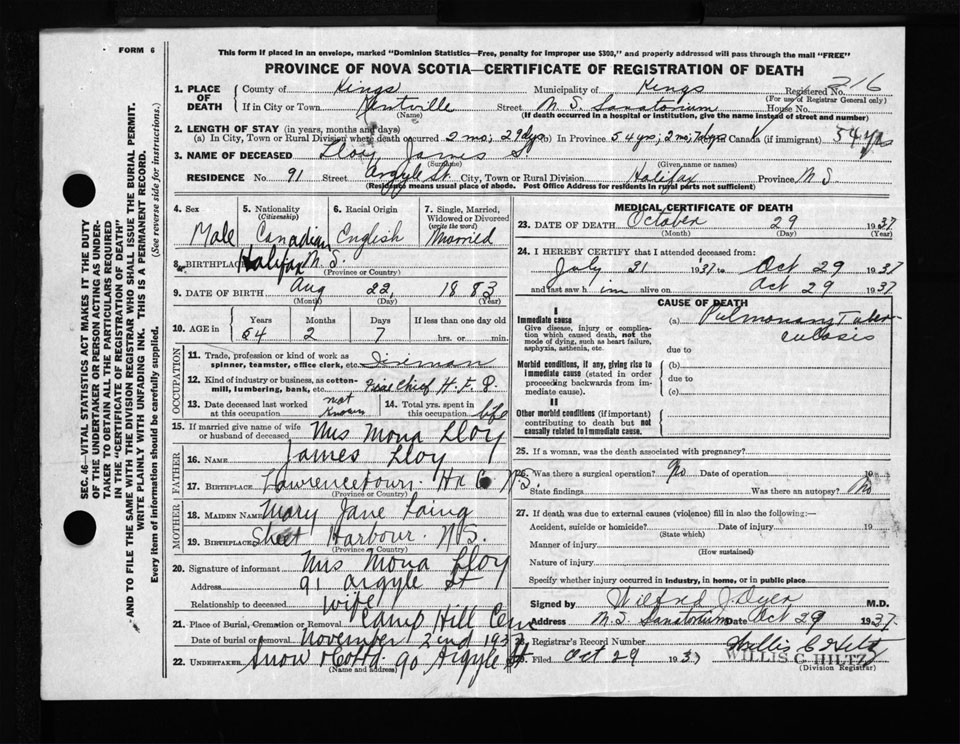 FORM 6
This form if placed in an envelope, marked "Dominion Statistics—Free, penalty for improper use $300," and properly addressed will pass through the mail "FREE"
PROVINCE OF NOVA SCOTIA—CERTIFICATE OF REGISTRATION OF DEATH
SEC. 46—VITAL STATISTICS ACT MAKES IT THE DUTY
OF THE UNDERTAKER OR PERSON ACTING AS UNDER-
TAKER TO OBTAIN ALL THE PARTICULARS REQUIRED
IN THE "CERTIFICATE OF REGISTRATION OF DEATH"
AND TO FILE THE SAME WITH THE DIVISION REGISTRAR WHO SHALL ISSUE THE BURIAL PERMIT.
WRITE PLAINLY WITH UNFADING INK. THIS IS A PERMANENT RECORD.
Every item of information should be carefully supplied. (See reverse side for instructions.)
1. PLACE OF DEATH County of Kings Municipality of Kings Registered No. 216
(For use of Registrar General only)
If in City or Town Kentville Street N.S. Sanatorium House No.
(Name) (If death occurred in a hospital or institution, give the name instead of street and number)
2. LENGTH OF STAY (in years, months and days)
(a) In City, Town or Rural Division where death occurred 2 mo; 29 dys (b) In Province 54 yrs; 2 mo; 7 dys In Canada (if immigrant) 54 yrs
3. NAME OF DECEASED Lloy James S.
(Surname) (Given name or names)
RESIDENCE No. 91 Street Argyle St. City, Town or Rural Division Halifax Province N.S.
(Residence means usual place of abode. Post Office Address for residents in rural parts not sufficient)
4. Sex 5. Nationality (Citizenship) 6. Racial Origin 7. Single, Married, Widowed or Divorced (write the word)
Male Canadian English Married
8. BIRTHPLACE Halifax N.S.
(Province or Country)
9. DATE OF BIRTH Aug 22, 1883
(Month) (Day) (Year)
10. AGE in Years Months Days If less than one day old
54 2 7 hrs. or min.
OCCUPATION
11. Trade, profession or kind of work as spinner, teamster, office clerk, etc. Fireman
12. Kind of industry or business, as cotton-mill, lumbering, bank, etc. Chief H. F. D.
13. Date deceased last worked at this occupation not known 14. Total yrs. spent in this occupation life
15. If married give name of wife or husband of deceased Mrs Mona Lloy
FATHER
16. NAME James Lloy
17. BIRTHPLACE Lawrencetown. Hx Co N.S.
(Province or Country)
MOTHER
18. MAIDEN NAME Mary Jane Laing
19. BIRTHPLACE Sheet Harbour. N.S.
(Province or Country)
20. Signature of informant Mrs Mona Lloy
Address 91 Argyle St
Relationship to deceased wife
21. Place of Burial, Cremation or Removal Camp Hill Cem
Date of burial or removal November 2nd 1937
22. UNDERTAKER Snow & Co Ltd 90 Argyle St
(Name and address)
MEDICAL CERTIFICATE OF DEATH
23. DATE OF DEATH October 29 1937
(Month) (Day) (Year)
24. I HEREBY CERTIFY that I attended deceased from:
July 31 1937 to Oct 29 1937
and last saw him alive on Oct 29 1937
CAUSE OF DEATH
I
Immediate cause (a) Pulmonary Tuberculosis
Give disease, injury or complication which caused death, not the mode of dying, such as heart failure, asphyxia, asthenia, etc.
due to
Morbid conditions, if any, giving rise to immediate cause (stated in order proceeding backwards from immediate cause). (b)
due to
(c)
II
Other morbid conditions (if important) contributing to death but not causally related to immediate cause.
25. If a woman, was the death associated with pregnancy?
26. Was there a surgical operation? No Date of operation 19
State findings Was there an autopsy? No
27. If death was due to external causes (violence) fill in also the following:—
Accident, suicide or homicide? Date of injury 19
(State which)
Manner of injury
(How sustained)
Nature of injury
Specify whether injury occurred in industry, in home, or in public place
Signed by Wilfred J. Dyer M.D.
Address N.S. Sanatorium Date Oct 29 1937
28. Registrar's Record Number
Willis C Hiltz
WILLIS C. HILTZ
Filed Oct 29 1937 (Division Registrar)